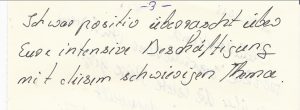 - 3 -
Ich war positiv überrascht über
Eure intensive Beschäftigung
mit diesem schwierigen Thema.